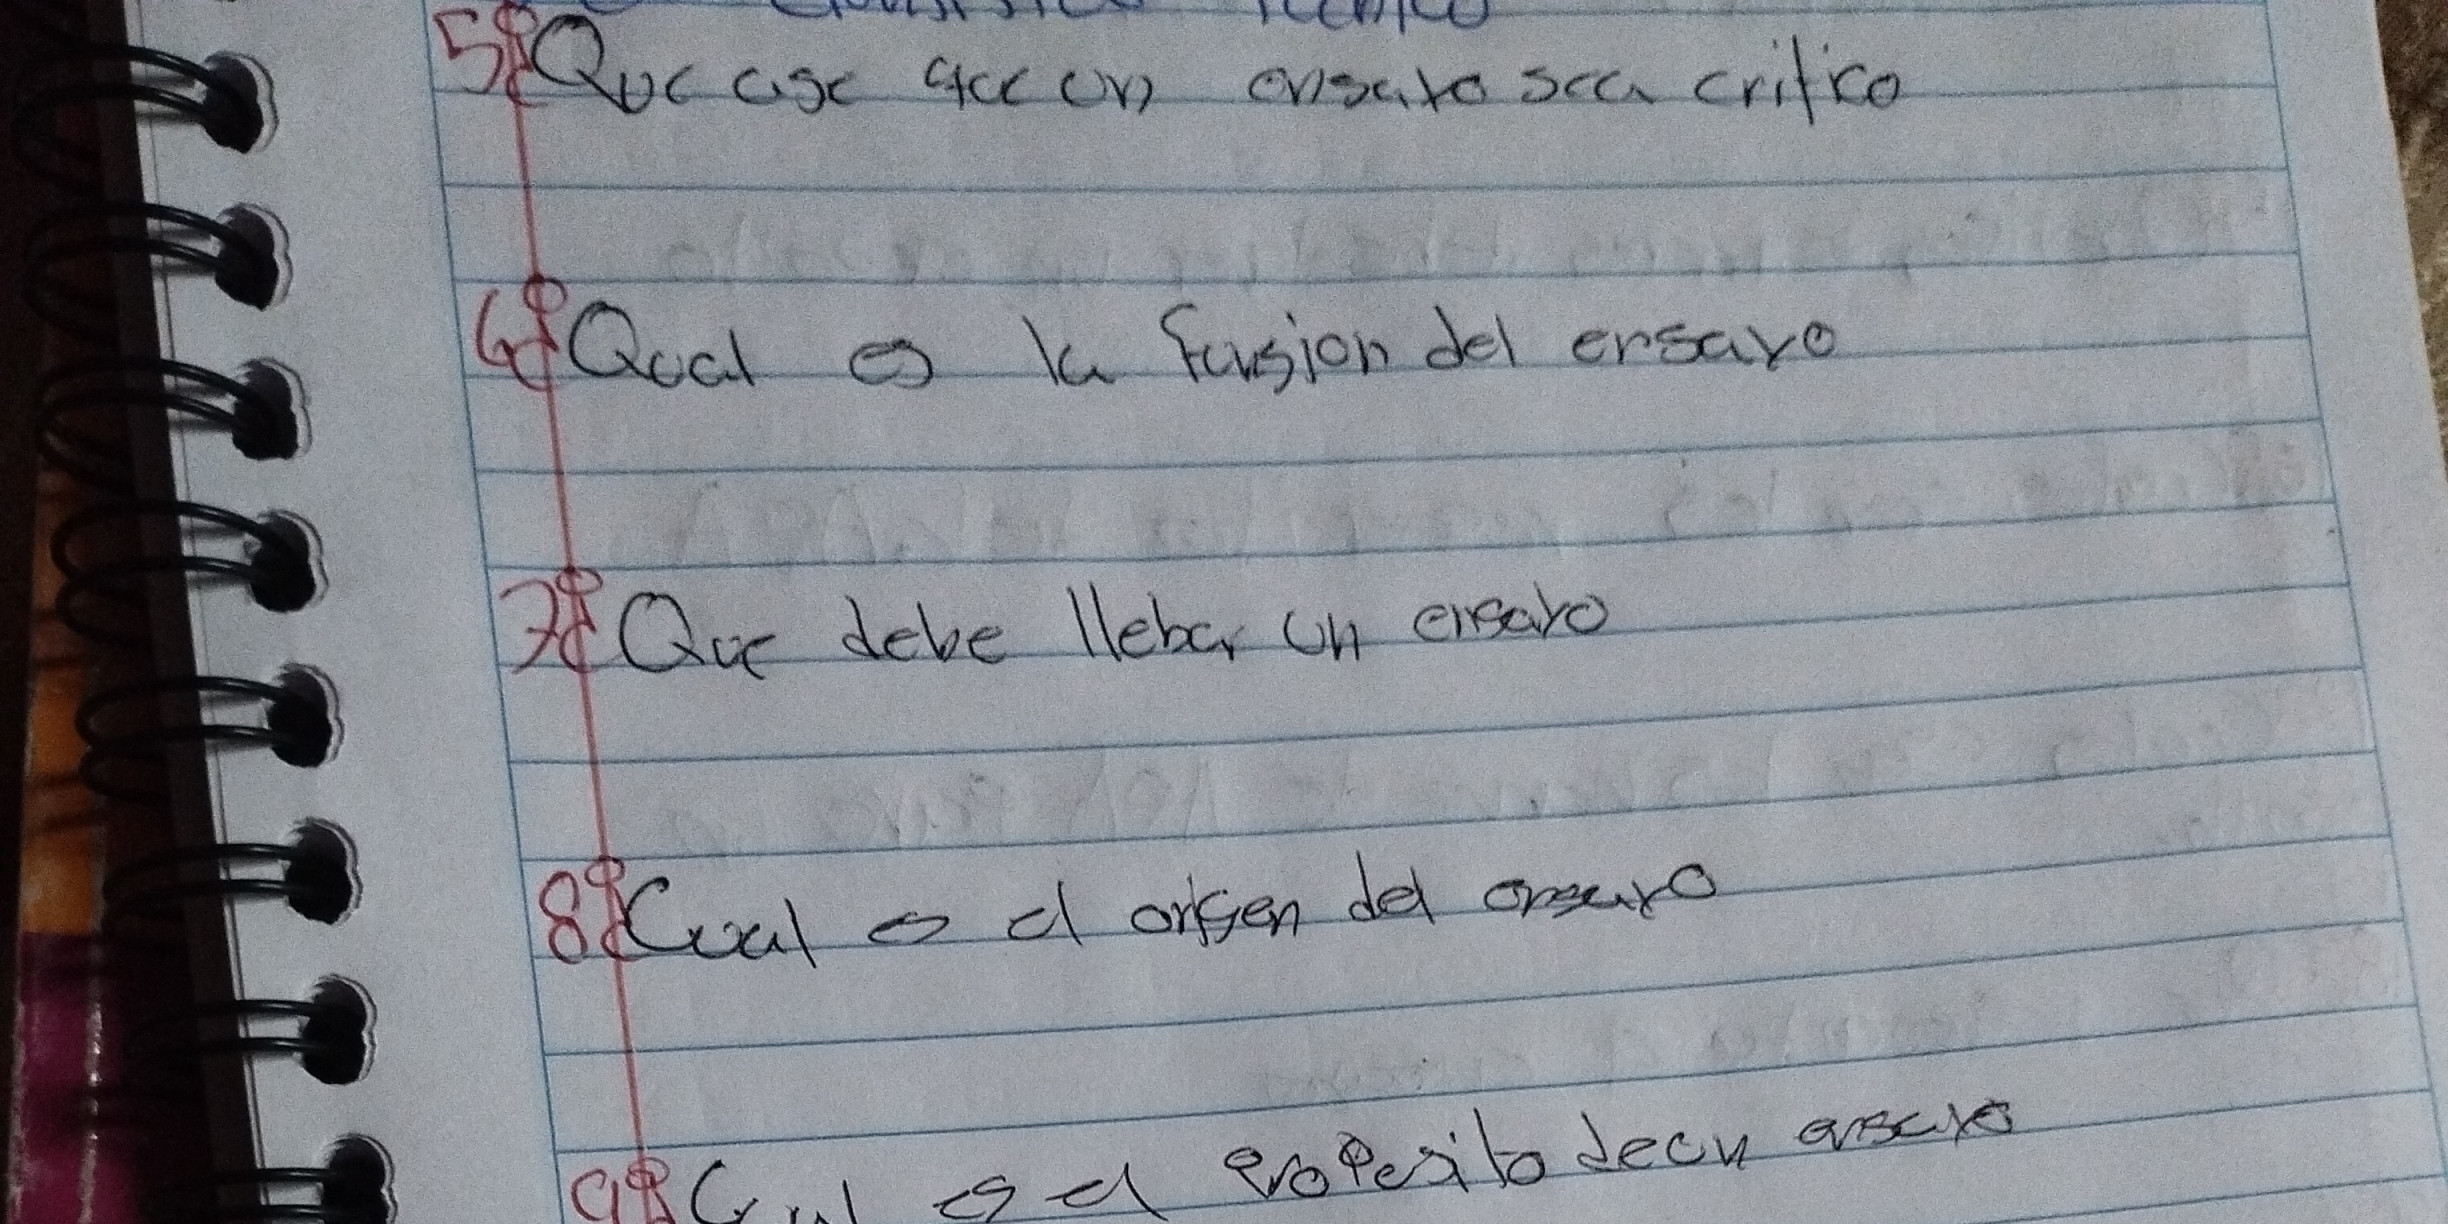 5 Que ase que un ensayo sea critico
6 Qual es la fusion del ensayo
7 Que debe llebar un ensayo
8 Cual es el origen del ensayo
9 Cual es el proposito decu ensayo